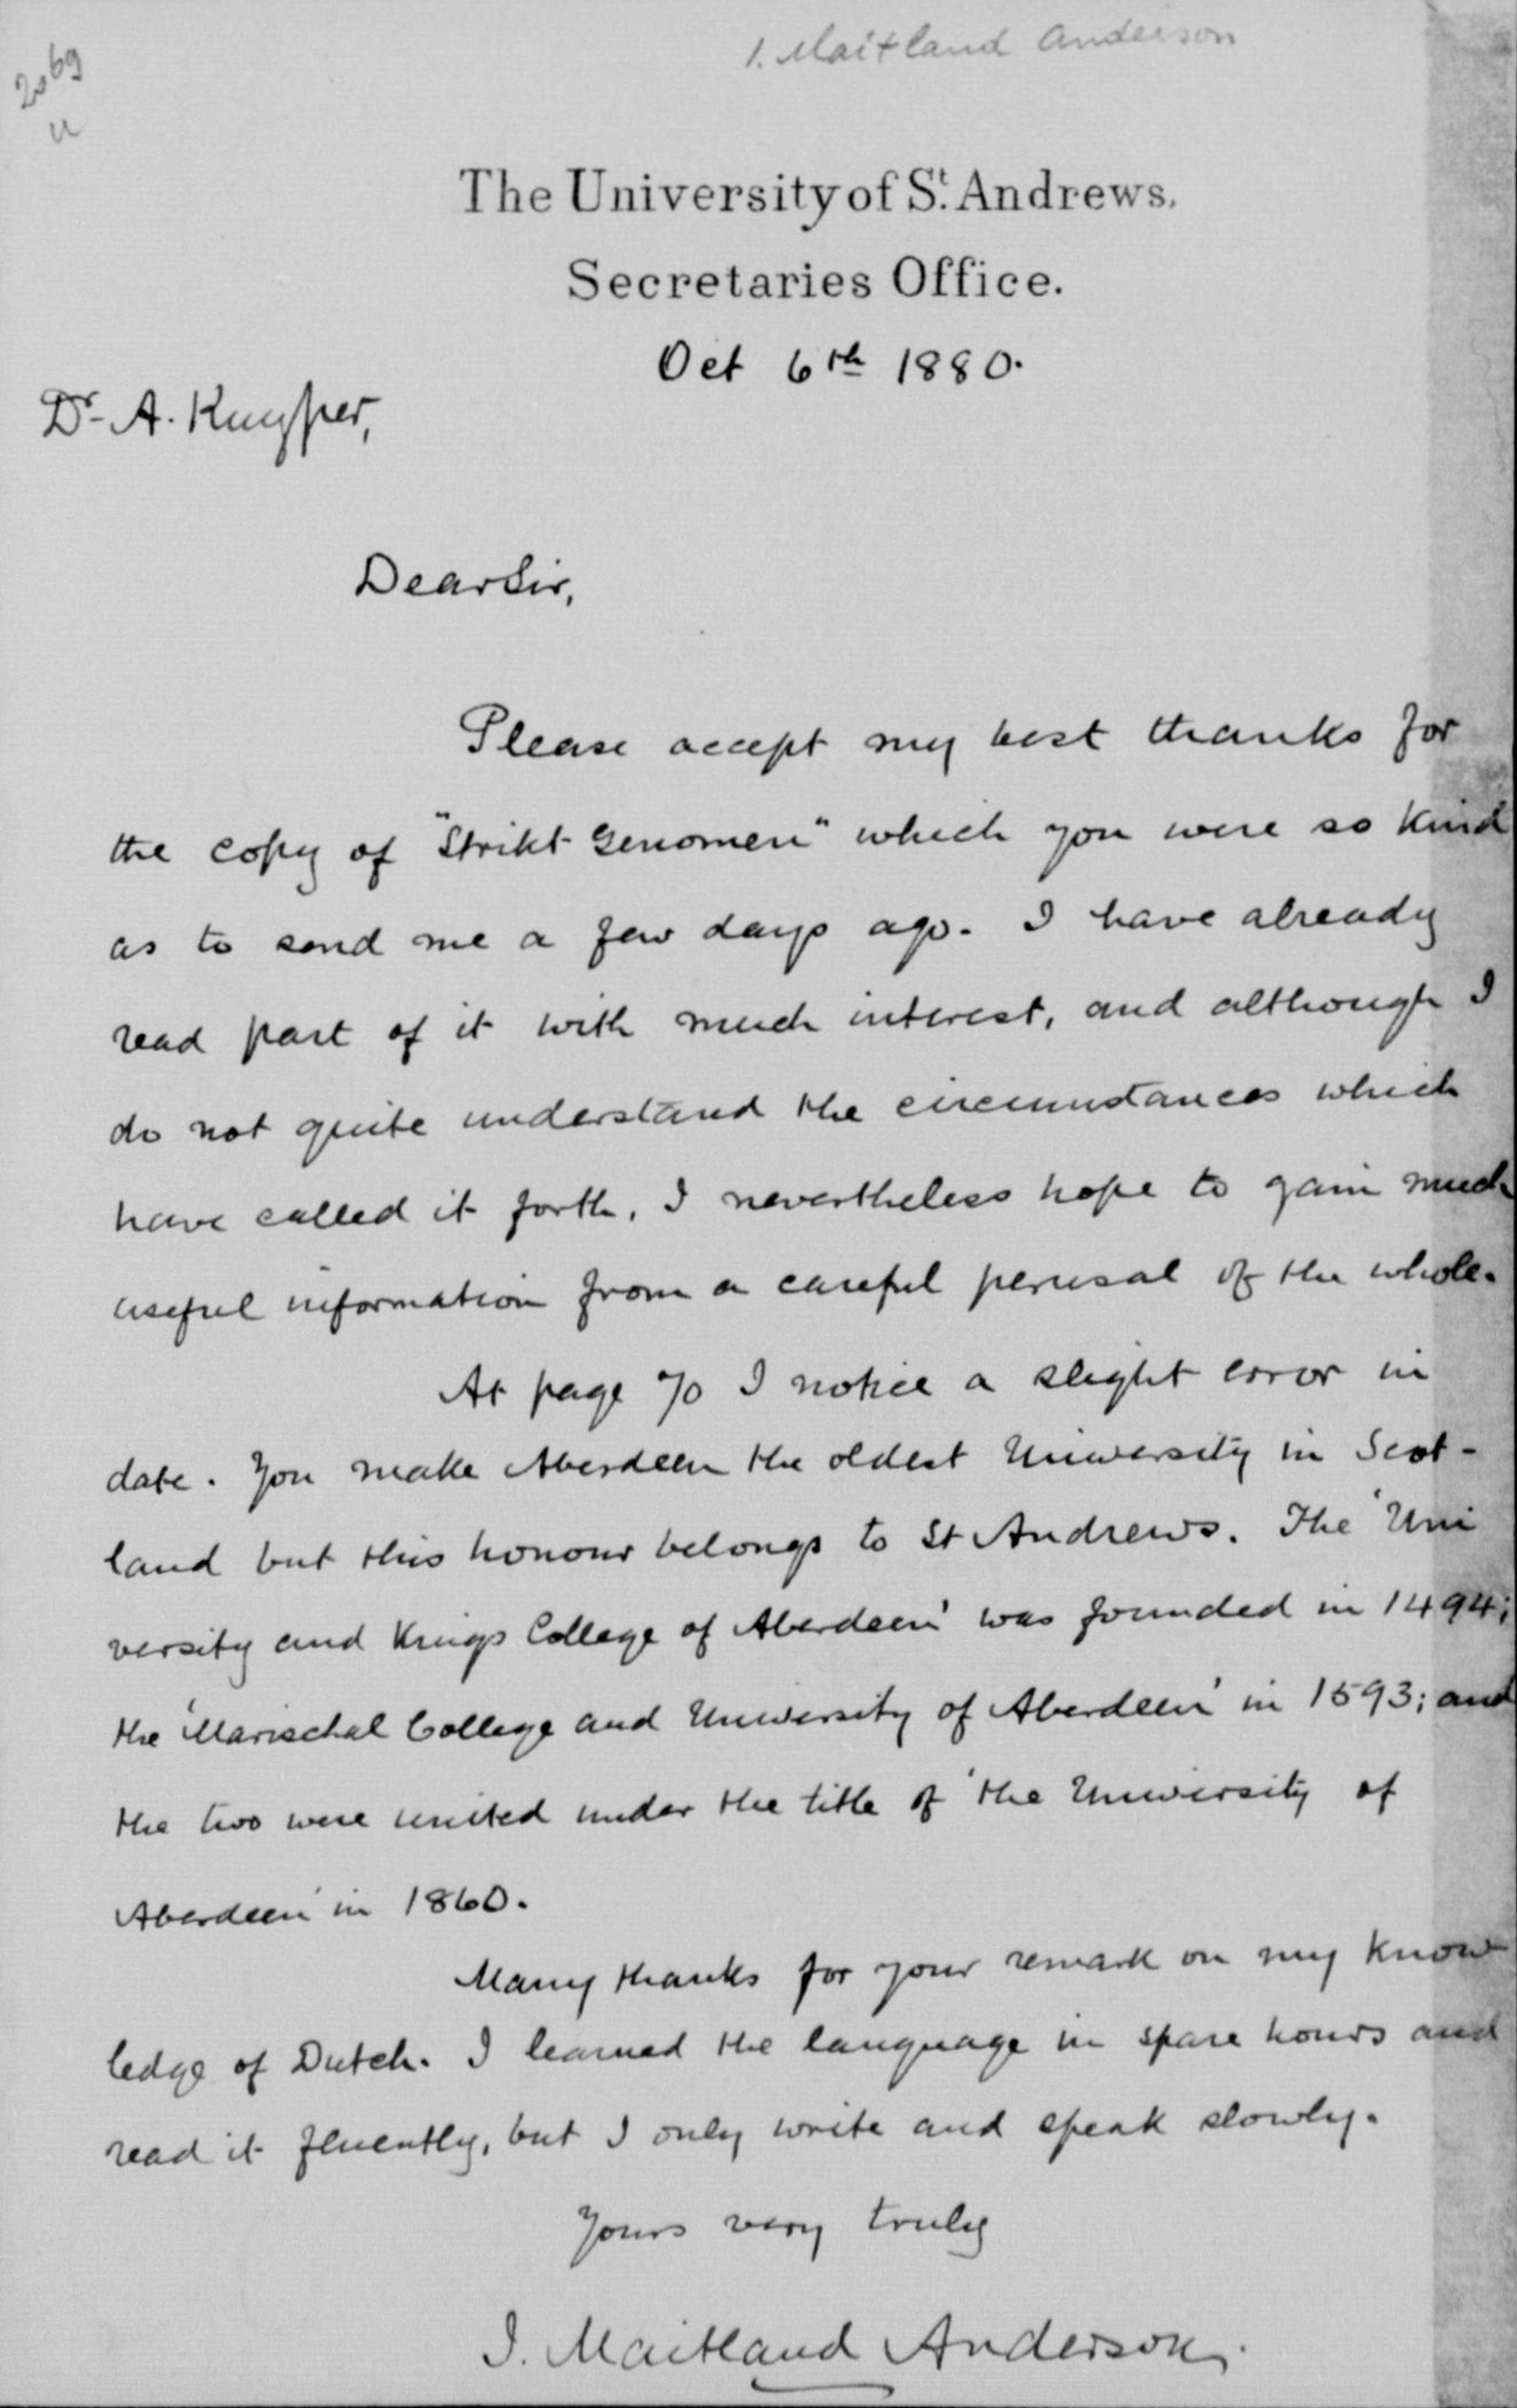 2069
u
I. Maitland Anderson
The University of St. Andrews.
Secretaries Office.
Oct 6th 1880.
Dr. A. Kuyper,
Dear Sir,
Please accept my best thanks for
the copy of "Strikt Genomen" which you were so kind
as to send me a few days ago. I have already
read part of it with much interest, and although I
do not quite understand the circumstances which
have called it forth, I nevertheless hope to gain much
useful information from a careful perusal of the whole.
At page 70 I notice a slight error in
date. You make Aberdeen the oldest University in Scot-
land but this honour belongs to St Andrews. The 'Uni
versity and Kings College of Aberdeen' was founded in 1494;
the 'Marischal College and University of Aberdeen' in 1593; and
the two were united under the title of 'the University of
Aberdeen' in 1860.
Many thanks for your remark on my know
ledge of Dutch. I learned the language in spare hours and
read it fluently, but I only write and speak slowly.
Yours very truly
J. Maitland Anderson.